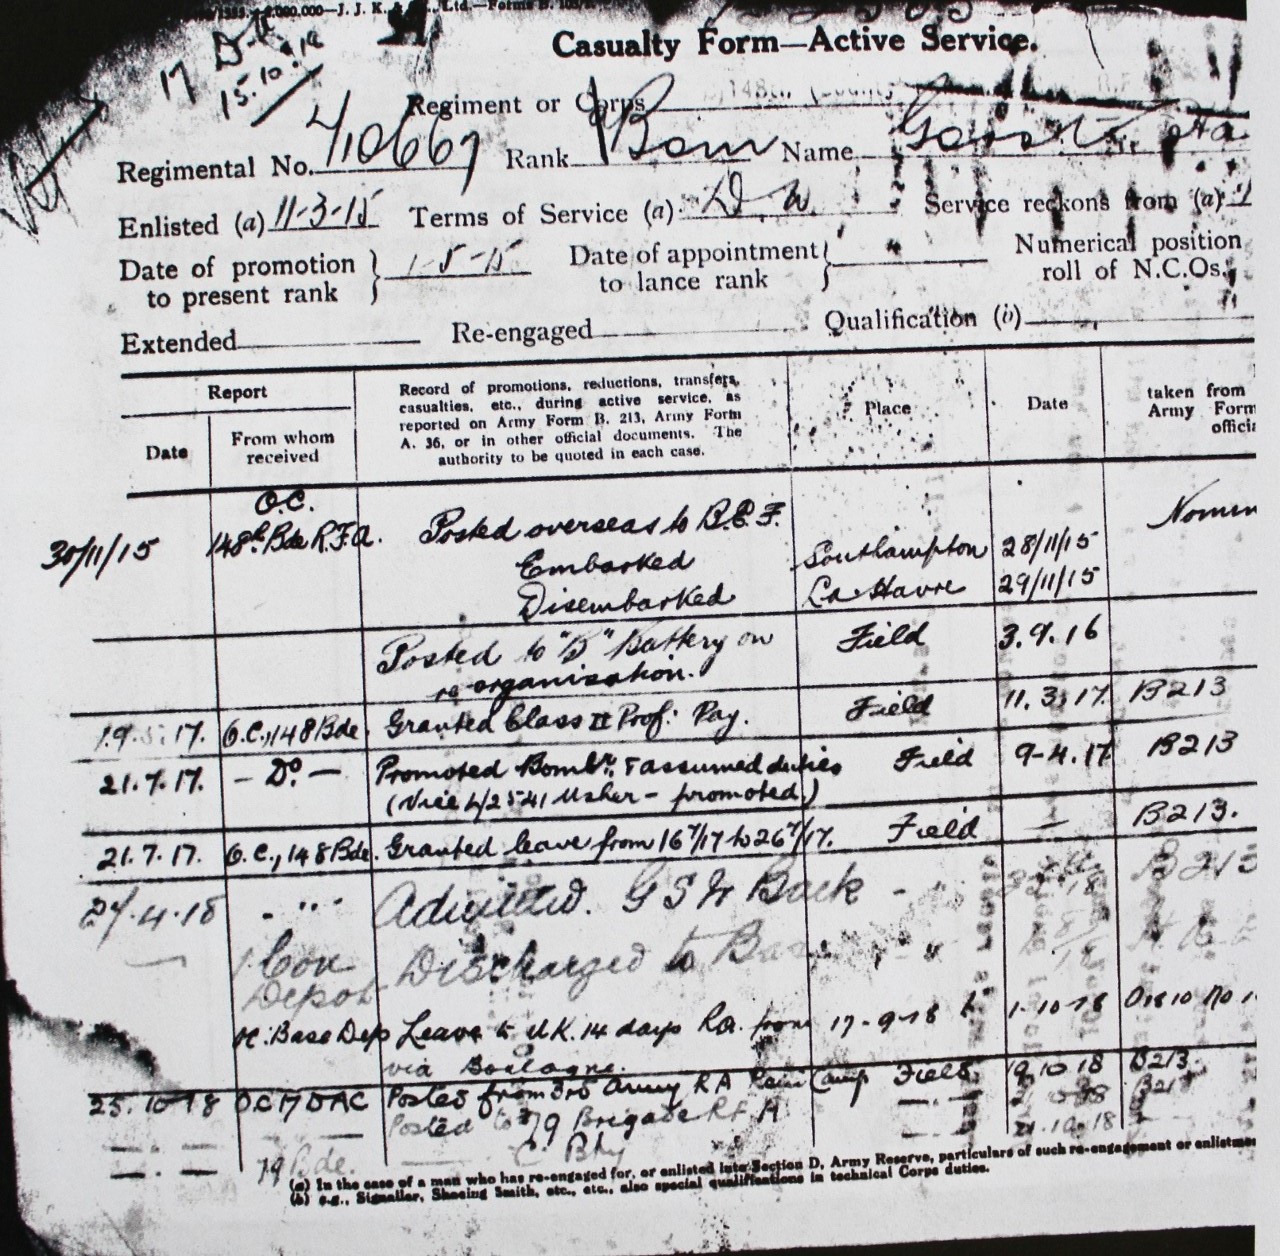 Casualty Form—Active Service.
17 D.A.C.
15.10.18
Regiment or Corps 148th (County
Regimental No. L/10667 Rank Bom Name
Enlisted (a) 11-3-15 Terms of Service (a) D.W. Service reckons from (a)
Date of promotion to present rank } 1-5-15 Date of appointment to lance rank } Numerical position
roll of N.C.Os.
Extended Re-engaged Qualification (b)
Report
Date
From whom received
Record of promotions, reductions, transfers,
casualties, etc., during active service, as
reported on Army Form B. 213, Army Form
A. 36, or in other official documents. The
authority to be quoted in each case.
Place
Date
taken from
Army Form
officia
O.C.
30/11/15 148th Bde R.F.A. Posted overseas to B.E.F. Nomin
Embarked Southampton 28/11/15
Disembarked La Havre 29/11/15
Posted to "B" Battery on Field 3.9.16
re organisation.
19.5.17. O.C., 148 Bde. Granted Class II Prof. Pay. Field 11.3.17. B213
21.7.17. — Do — Promoted Bombr. & assumed duties Field 9-4.17 B213
(Vice L/2541 Usher – promoted.)
21.7.17. O.C., 148 Bde. Granted leave from 16/7/17 to 26/7/17. Field — B213.
27.4.18 - " - Admitted. G S W Back B213
Con Depot Discharged to Base "
H. Base Dep Leave to U.K. 14 days Ra. from 17-9-18 to 1-10-18
via Boulogne.
25.10.18 O.C 17 DAC Posted from 3rd Army R A Rein Camp Field 19.10.18 B213
Posted to 79 Brigade R F A B213
79 Bde. C. Bty 21.10.18
(a) In the case of a man who has re-engaged for, or enlisted into Section D, Army Reserve, particulars of such re-engagement or enlistme
(b) e.g., Signaller, Shoeing Smith, etc., etc., also special qualifications in technical Corps duties.